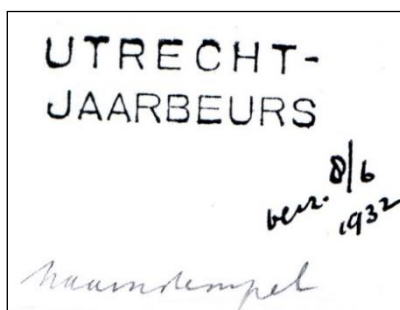 UTRECHT-
JAARBEURS
8/6
verz.
1932
naamstempel